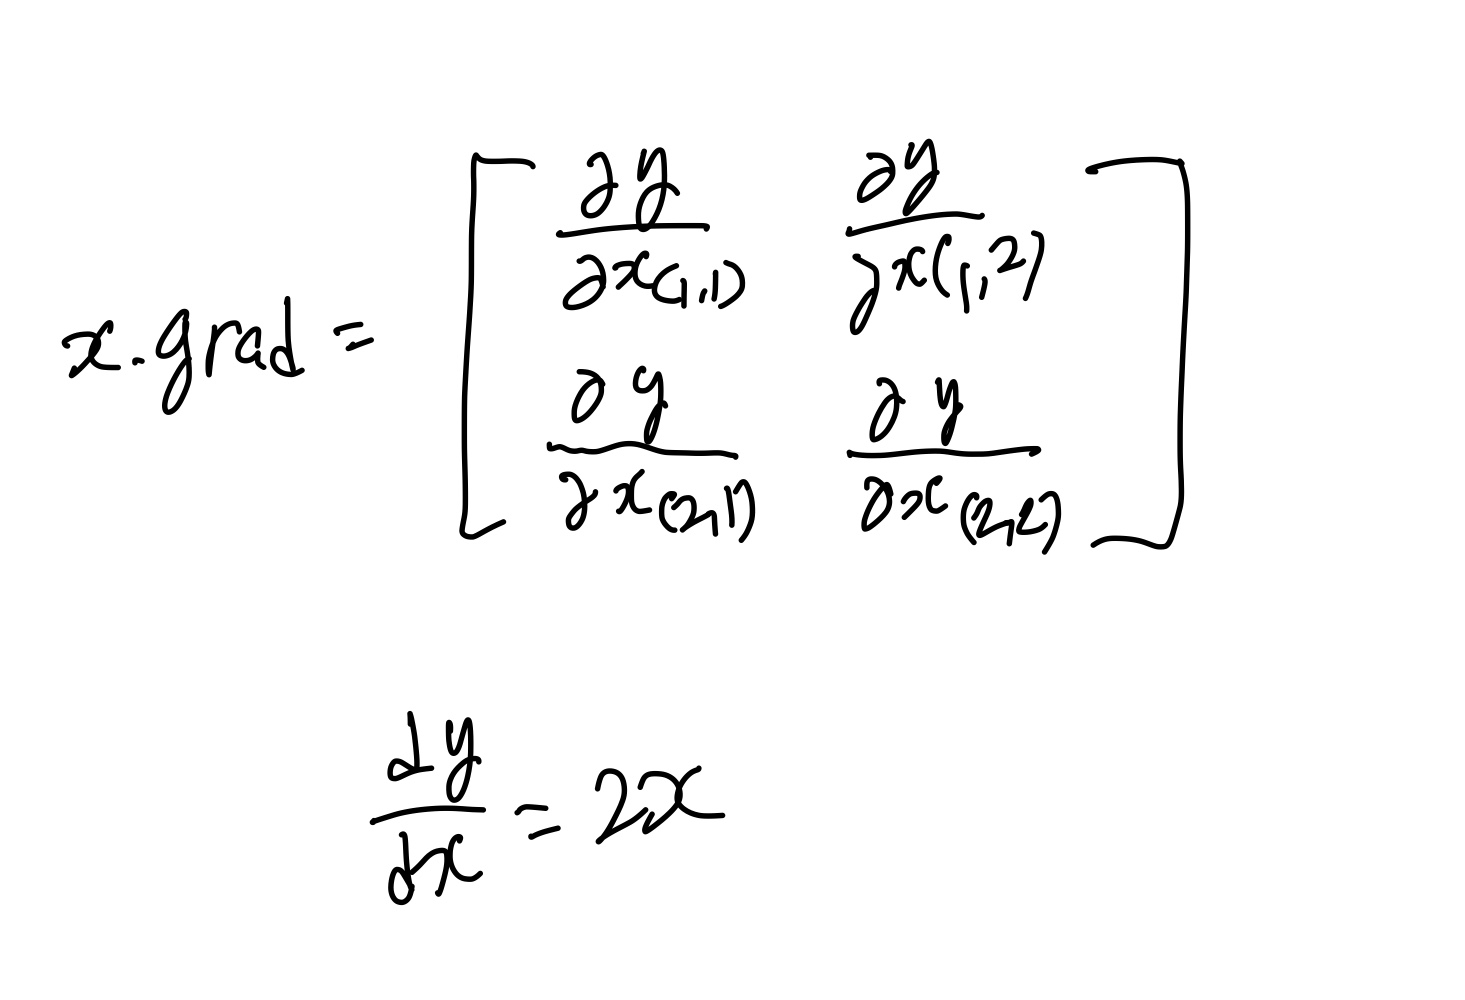 x.grad = [ ∂y/∂x(1,1) ∂y/∂x(1,2)
∂y/∂x(2,1) ∂y/∂x(2,2) ]
dy/dx = 2x